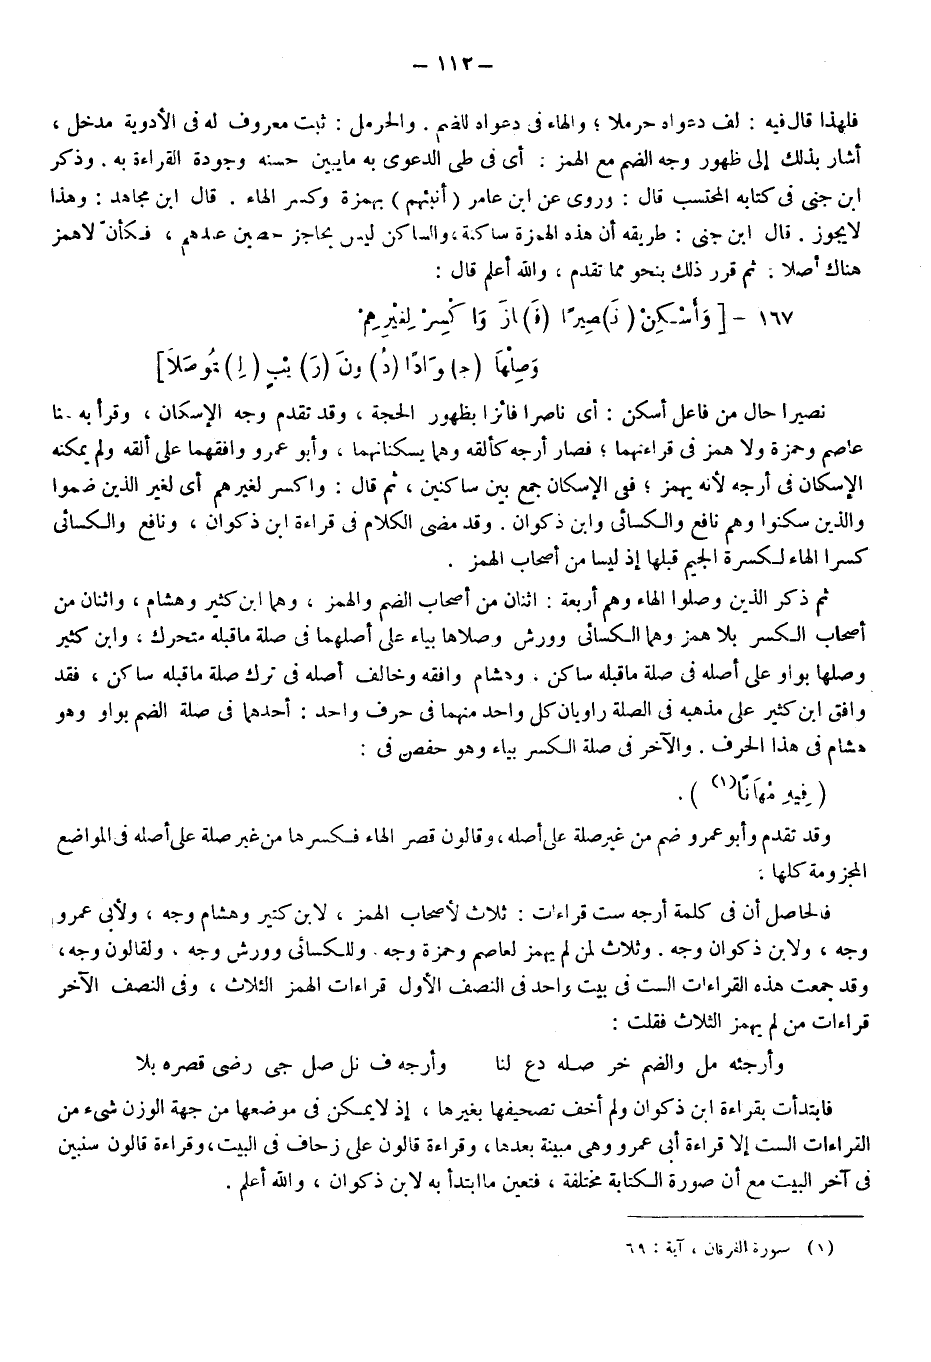 – ١١٢ –
فلهذا قال فيه : لف دعواه حرملا ؛ والهاء فى دعواه للضم . والحرمل : ثبت معروف له فى الأدوية مدخل ،
أشار بذلك إلى ظهور وجه الضم مع الهمز : أى فى طى الدعوى به مايبين حسنه وجودة القراءة به . وذكر
ابن جنى فى كتابه المحتسب قال : وروى عن ابن عامر ( أنبئهم ) بهمزة وكسر الهاء . قال ابن مجاهد : وهذا
لايجوز . قال ابن جنى : طريقه أن هذه الهمزة ساكنة ، والساكن ليس بحاجز حصين عندهم ، فكأن لاهمز
هناك أصلا : ثم قرر ذلك بنحو مما تقدم ، والله أعلم قال :
١٦٧ – [ وَأَسْكِنْ ( نَ)صِيرًا (فَ)ازَ وَاكْسِرْ لِغَيْرِهِمْ
وَصِلْهَا (جَ)وَادًا (دُ)ونَ (رَ)يْبٍ (لِ)تُوصَلاَ]
نصيرا حال من فاعل أسكن : أى ناصرا فائزا بظهور الحجة ، وقد تقدم وجه الإسكان ، وقرأ به هنا
عاصم وحمزة ولا همز فى قراءتهما ؛ فصار أرجه كألقه وهما يسكنانهما ، وأبو عمرو وافقهما على ألقه ولم يمكنه
الإسكان فى أرجه لأنه يهمز ؛ ففى الإسكان جمع بين ساكنين ، ثم قال : واكسر لغيرهم أى لغير الذين ضموا
والذين سكنوا وهم نافع والكسائى وابن ذكوان . وقد مضى الكلام فى قراءة ابن ذكوان ، ونافع والكسائى
كسرا الهاء لكسرة الجيم قبلها إذ ليسا من أصحاب الهمز .
ثم ذكر الذين وصلوا الهاء وهم أربعة : اثنان من أصحاب الضم والهمز ، وهما ابن كثير وهشام ، واثنان من
أصحاب الكسر بلا همز وهما الكسائى وورش وصلاها بياء على أصلهما فى صلة ماقبله متحرك ، وابن كثير
وصلها بواو على أصله فى صلة ماقبله ساكن . وهشام وافقه وخالف أصله فى ترك صلة ماقبله ساكن ، فقد
وافق ابن كثير على مذهبه فى الصلة راويان كل واحد منهما فى حرف واحد : أحدهما فى صلة الضم بواو وهو
هشام فى هذا الحرف . والآخر فى صلة الكسر بياء وهو حفص فى :
( فِيهِ مُهَانًا(١) ) .
وقد تقدم وأبو عمرو ضم من غير صلة على أصله ، وقالون قصر الهاء فكسرها من غير صلة على أصله فى المواضع
المجزومة كلها :
فالحاصل أن فى كلمة أرجه ست قراءات : ثلاث لأصحاب الهمز ، لابن كثير وهشام وجه ، ولأبى عمرو
وجه ، ولابن ذكوان وجه . وثلاث لمن لم يهمز لعاصم وحمزة وجه . وللكسائى وورش وجه . ولقالون وجه ،
وقد جمعت هذه القراءات الست فى بيت واحد فى النصف الأول قراءات الهمز الثلاث ، وفى النصف الآخر
قراءات من لم يهمز الثلاث فقلت :
وأرجئه مل والضم خر صله دع لنا وأرجه ف نل صل جى رضى قصره بلا
فابتدأت بقراءة ابن ذكوان ولم أخف تصحيفها بغيرها ، إذ لايمكن فى موضعها من جهة الوزن شىء من
القراءات الست إلا قراءة أبى عمرو وهى مبينة بعدها ، وقراءة قالون على زحاف فى البيت ، وقراءة قالون ستبين
فى آخر البيت مع أن صورة الكتابة مختلفة ، فتعين ماابتدأ به لابن ذكوان ، والله أعلم .
(١) سورة الفرقان ، آية : ٦٩